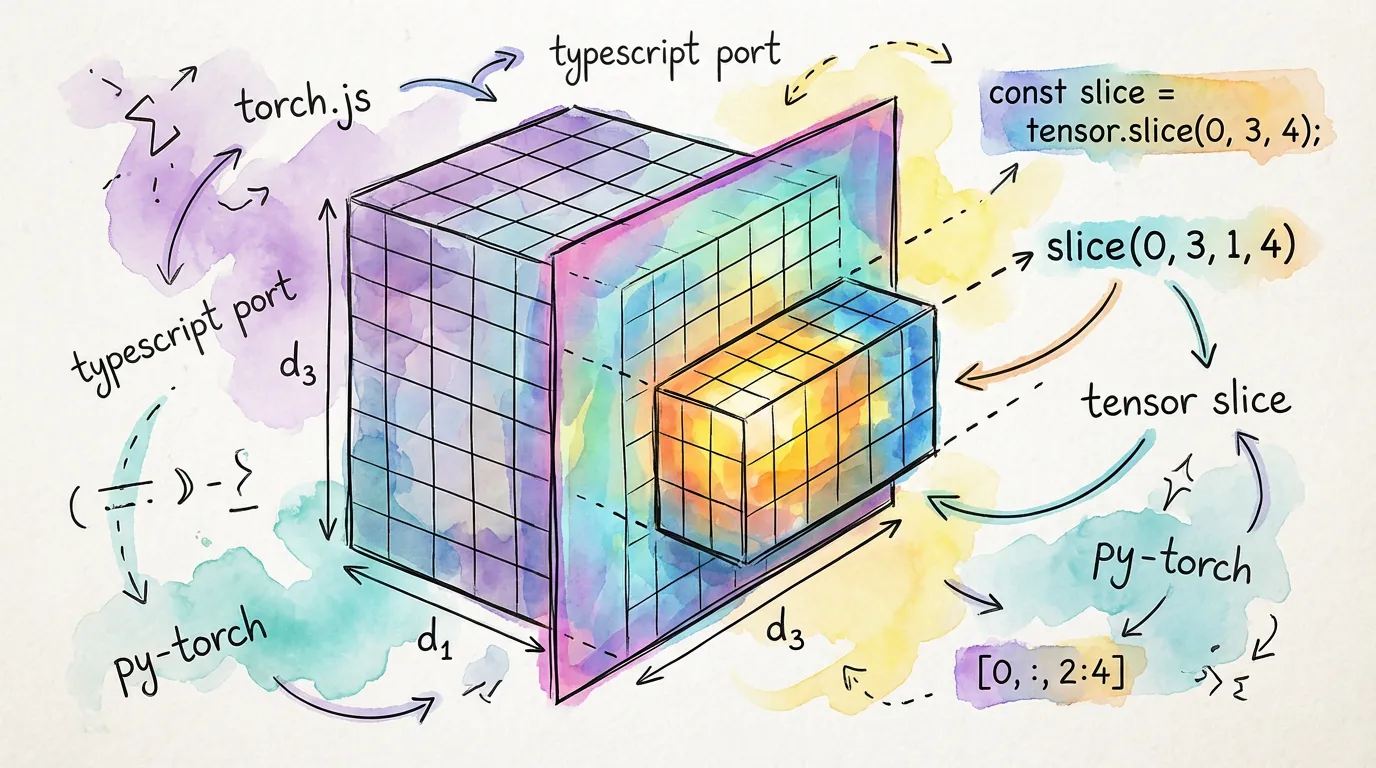 typescript port
torch.js
const slice =
tensor.slice(0, 3, 4);
slice(0, 3, 1, 4)
typescript port
d₃
tensor slice
py-torch
py-torch
d₁
d₃
[0, :, 2:4]